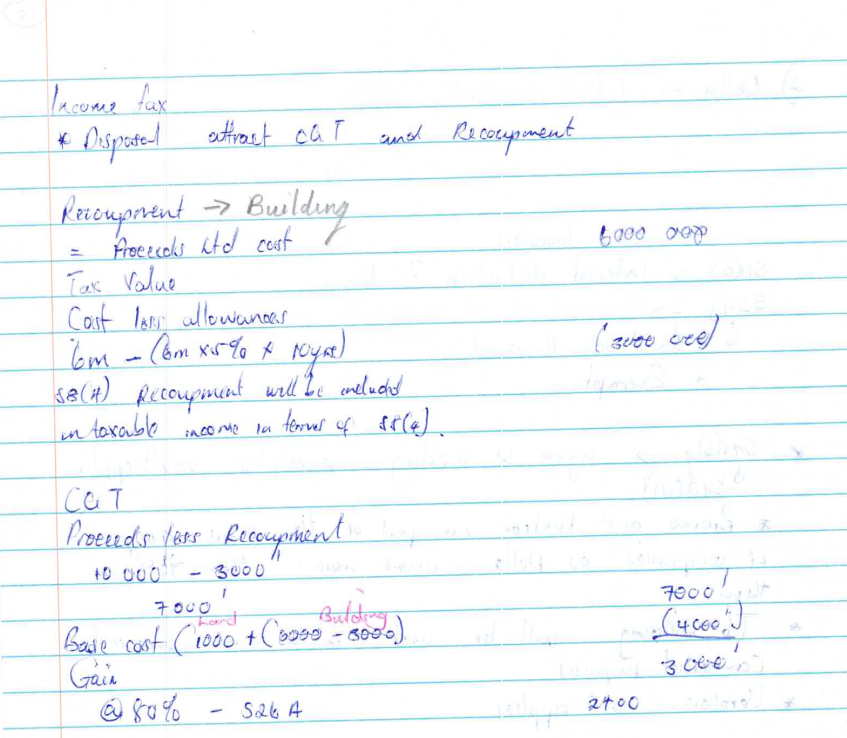 Income tax
* Disposal attract CGT and Recoupment
Recoupment → Building
= Proceeds Ltd cost 6000 000
Tax Value
Cost less allowances
6m - (6m x 5% x 10yrs) (3000 000)
S8(4) Recoupment will be included
in taxable income in terms of S8(4).
CGT
Proceeds less Recoupment
10 000' - 3000'
7000' 7000'
Land Building
Base cost (1000 + (6000 - 3000) (4000')
Gain 3000'
@ 80% - S26A 2400